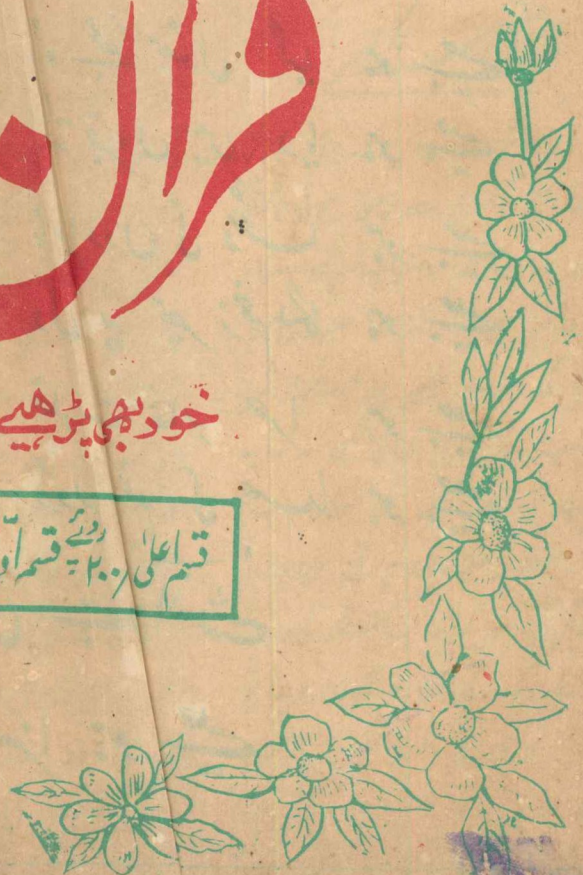 قرآن
خود بھی پڑھیے
قسم اعلیٰ /۲۰۰ روپے قسم